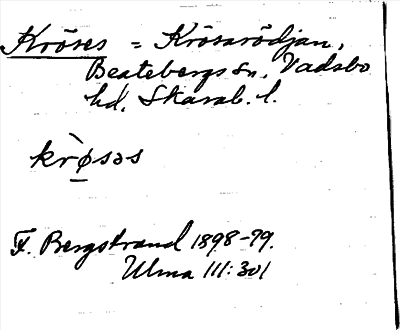 Kröses = Krösarödjan,
Beatebergs sn, Vadsbo
hd, Skarab. l.
krø̀səs
F. Bergstrand 1898-99.
Ulma 111:301